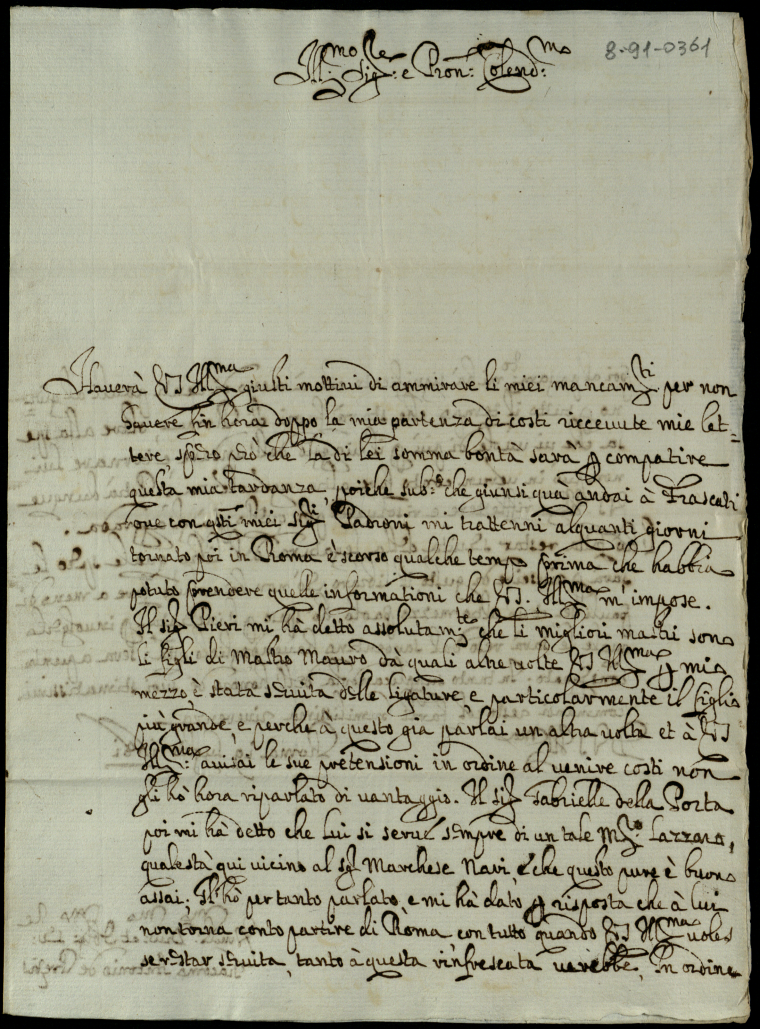 Ill:mo Sig:re e Pron: Colend:mo
8-91-0361
Haverà VS Ill:ma giusti mottivi di ammirare li miei mancam:ti per non
havere fin hora doppo la mia partenza di costì riccevute mie let-
tere, spero però che la di lei somma bontà sarà p compatire
questa mia tardanza, poiche sub:o che giunsi quà andai à Frascati
ove con gsti miei Sig:ri Padroni mi trattenni alquanti giorni
tornato poi in Roma è scorso qualche tempo prima che habbia
potuto prendere quelle informationi che VS. Ill:ma m'impose.
Il sig Pieri mi hà detto assolutam:te che li migliori mastri sono
li figli di Mastro Mauro dà quali altre volte VS Ill:ma p mio
mezzo è stata servita delle ligature, e particolarmente il figlio
più grande, e perche à questo gia parlai un altra volta et à VS
Ill:ma avisai le sue pretensioni in ordine al venire costì non
gli hò hora riparlato di vantaggio. Il sig Gabrielle della Porta
poi mi hà detto che lui si serve sempre di un tale M:ro Lazzaro,
qual stà qui vicino al sig Marchese Navi, e che questo pure è buono
assai; Il hò per tanto parlato, e mi hà dato p risposta che à lui
non torna conto partire di Roma con tutto quando VS Ill:ma voles
se restar servita, tanto à questa rinfrescata verebbe, In ordine